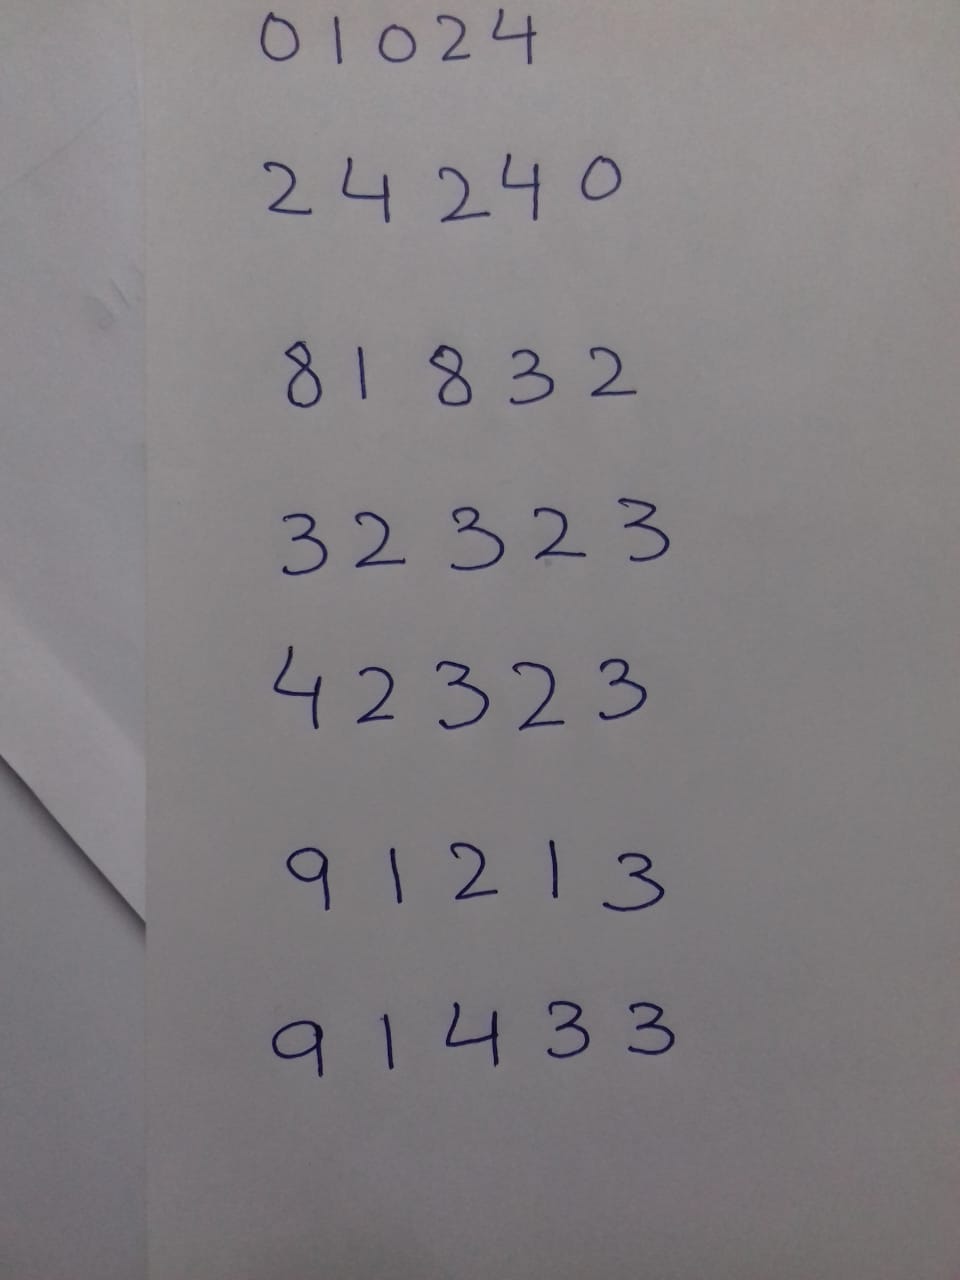 01024
24240
81832
32323
42323
91213
91433